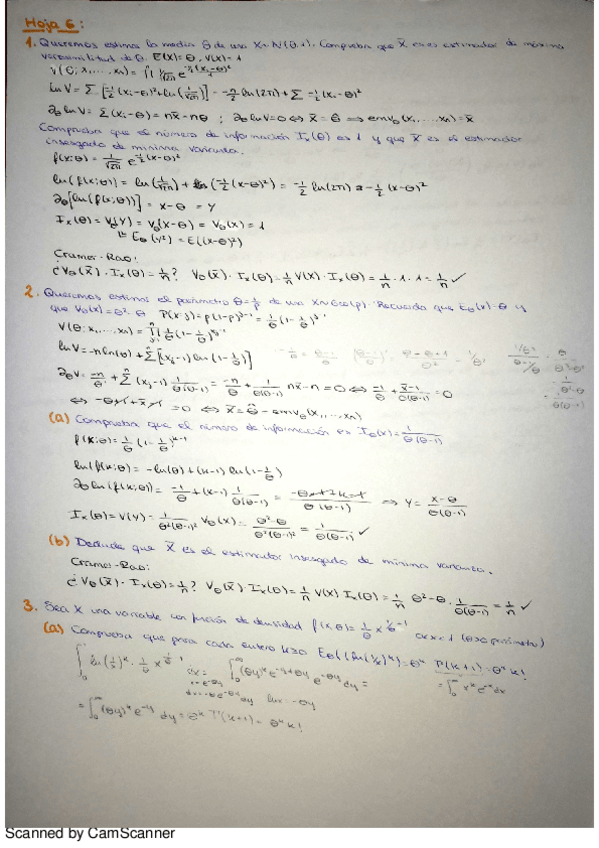 Hoja 6:
1. Queremos estimar la media θ de una X∼N(θ,1). Comprueba que X̄ es el estimador de máxima
verosimilitud de θ. E(X)=θ, V(X)=1
V(θ; x₁,...,xₙ) = ∏ 1/√2π e^{-1/2(xᵢ-θ)²}
ln V = Σ [-1/2(xᵢ-θ)² + ln(1/√2π)] = -n/2 ln(2π) + Σ -1/2(xᵢ-θ)²
∂θ ln V = Σ(xᵢ-θ) = nx̄ - nθ ; ∂θ ln V = 0 ⇔ x̄ = θ̂ ⟹ emvθ(x₁,...,xₙ) = x̄
Comprueba que el número de información Iₓ(θ) es 1 y que X̄ es el estimador
insesgado de mínima varianza.
f(x;θ) = 1/√2π e^{-1/2(x-θ)²}
ln(f(x;θ)) = ln(1/√2π) + (-1/2(x-θ)²) = -1/2 ln(2π) - 1/2(x-θ)²
∂θ[ln(f(x;θ))] = x-θ = Y
Iₓ(θ) = Vθ(Y) = Vθ(X-θ) = Vθ(X) = 1
Eθ(Y²) = E((X-θ)²)
Cramer-Rao:
¿Vθ(X̄)·Iₓ(θ) = 1/n? Vθ(X̄)·Iₓ(θ) = 1/n V(X)·Iₓ(θ) = 1/n·1·1 = 1/n ✓
2. Queremos estimar el parámetro θ=1/p de una X∼Geo(p). Recuerda que Eθ(X)=θ y
que Vθ(X)=θ²-θ P(X=j) = p(1-p)^{j-1} = 1/θ(1-1/θ)^{j-1}
V(θ; x₁,...,xₙ) = ∏ 1/θ(1-1/θ)
ln V = -n ln(θ) + Σ[(xⱼ-1) ln(1-1/θ)]
∂θ V = -n/θ + Σ(xⱼ-1) 1/θ(θ-1) = -n/θ + 1/θ(θ-1) nx̄-n = 0 ⇔ -1/θ + x̄-1/θ(θ-1) = 0
= 0 ⇔ x̄ = θ̂ = emvθ(x₁,...,xₙ)
(a) Comprueba que el número de información es Iθ(x) = 1/θ(θ-1)
f(x;θ) = 1/θ (1-1/θ)^{x-1}
ln(f(x;θ)) = -ln(θ) + (x-1) ln(1-1/θ)
∂θ ln(f(x;θ)) = -1/θ + (x-1) 1/θ(θ-1) = ⟹ Y = x-θ/θ(θ-1)
Iₓ(θ) = V(Y) = 1/θ²(θ-1)² Vθ(X) = θ²-θ/θ²(θ-1)² = 1/θ(θ-1) ✓
(b) Deduce que X̄ es el estimador insesgado de mínima varianza.
Cramer-Rao:
¿Vθ(X̄)·Iₓ(θ) = 1/n? Vθ(X̄)·Iₓ(θ) = 1/n V(X) Iₓ(θ) = 1/n θ²-θ · 1/θ(θ-1) = 1/n ✓
3. Sea X una variable con función de densidad f(x,θ) = 1/θ x^{1/θ-1} 0<x<1 (θ>0 parámetro)
(a) Comprueba que para cada entero k≥0 Eθ((ln(1/x))^k) = θ^k Γ(k+1) = θ^k k!
∫ ln(1/x)^k · 1/θ x^{1/θ-1} dx =
x=e^{-θy}
ln x = -θy
= ∫₀^∞ x^k e^{-x} dx
= ∫₀^∞ (θy)^k e^{-y} dy = θ^k Γ(k+1) = θ^k k!
Scanned by CamScanner